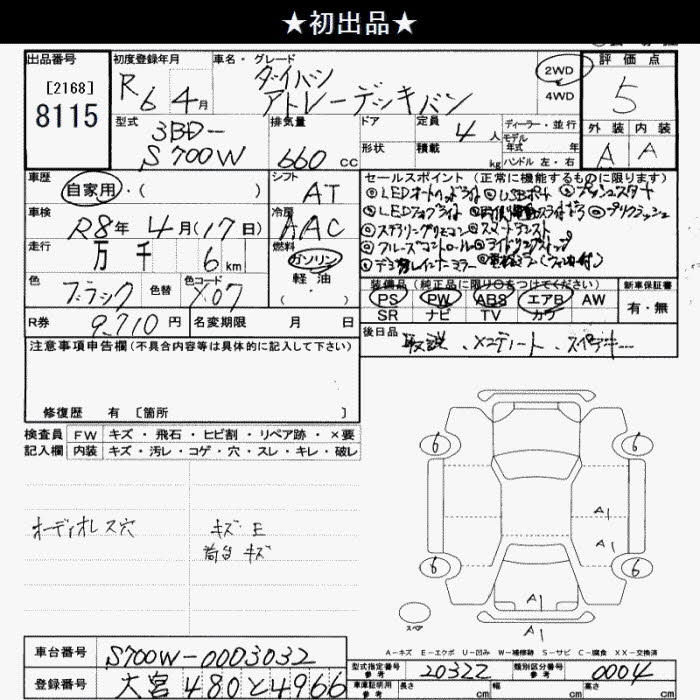 ★初出品★
出品番号
[2168]
8115
初度登録年月
R6 4月
車名・グレード
ダイハツ
アトレーデッキバン
2WD
4WD
評価点
5
外装 内装
A A
型式
3BD-
S700W
排気量
660cc
ドア
形状
定員
4人
積載
kg
ディーラー・並行
モデル
年式 年
ハンドル 左・右
車歴
自家用・( )
シフト
AT
車検
R8年 4月(17日)
冷房
AAC
走行
万 千 6km
燃料
ガソリン
軽油
( )
色
ブラック
色替
色コード
X07
R券
9710円
名変期限 月 日
セールスポイント (正常に機能するものに限ります)
◎LEDオートヘッドライト ◎USBポート ◎プッシュスタート
◎LEDフォグライト ◎両側電動スライドドア ◎プリクラッシュ
◎ステアリングリモコン ◎スマートアシスト
◎クルーズコントロール ◎アイドリングストップ
装備品 (純正品に限り○をつけてください)
PS PW ABS エアB AW
SR ナビ TV カワ
新車保証書
有・無
後日品
取説、メンテノート、スペアキー
注意事項申告欄(不具合内容等は具体的に記入して下さい)
修復歴 有 〔箇所 〕
検査員 FW キズ・飛石・ヒビ割・リペア跡・×要
記入欄 内装 キズ・汚レ・コゲ・穴・スレ・キレ・破レ
オーディオレス穴
キズ E
荷台キズ
6
6
A1
A1
6
6
A1
スペア
A1
A-キズ E-エクボ U-凹み W-補修跡 S-サビ C-腐食 XX-交換済
車台番号
S700W-0003032
登録番号
大宮 480と4966
型式指定番号
参考
20322
類別区分番号
参考
0004
車庫証明用
参考
長さ cm 幅 cm 高さ cm